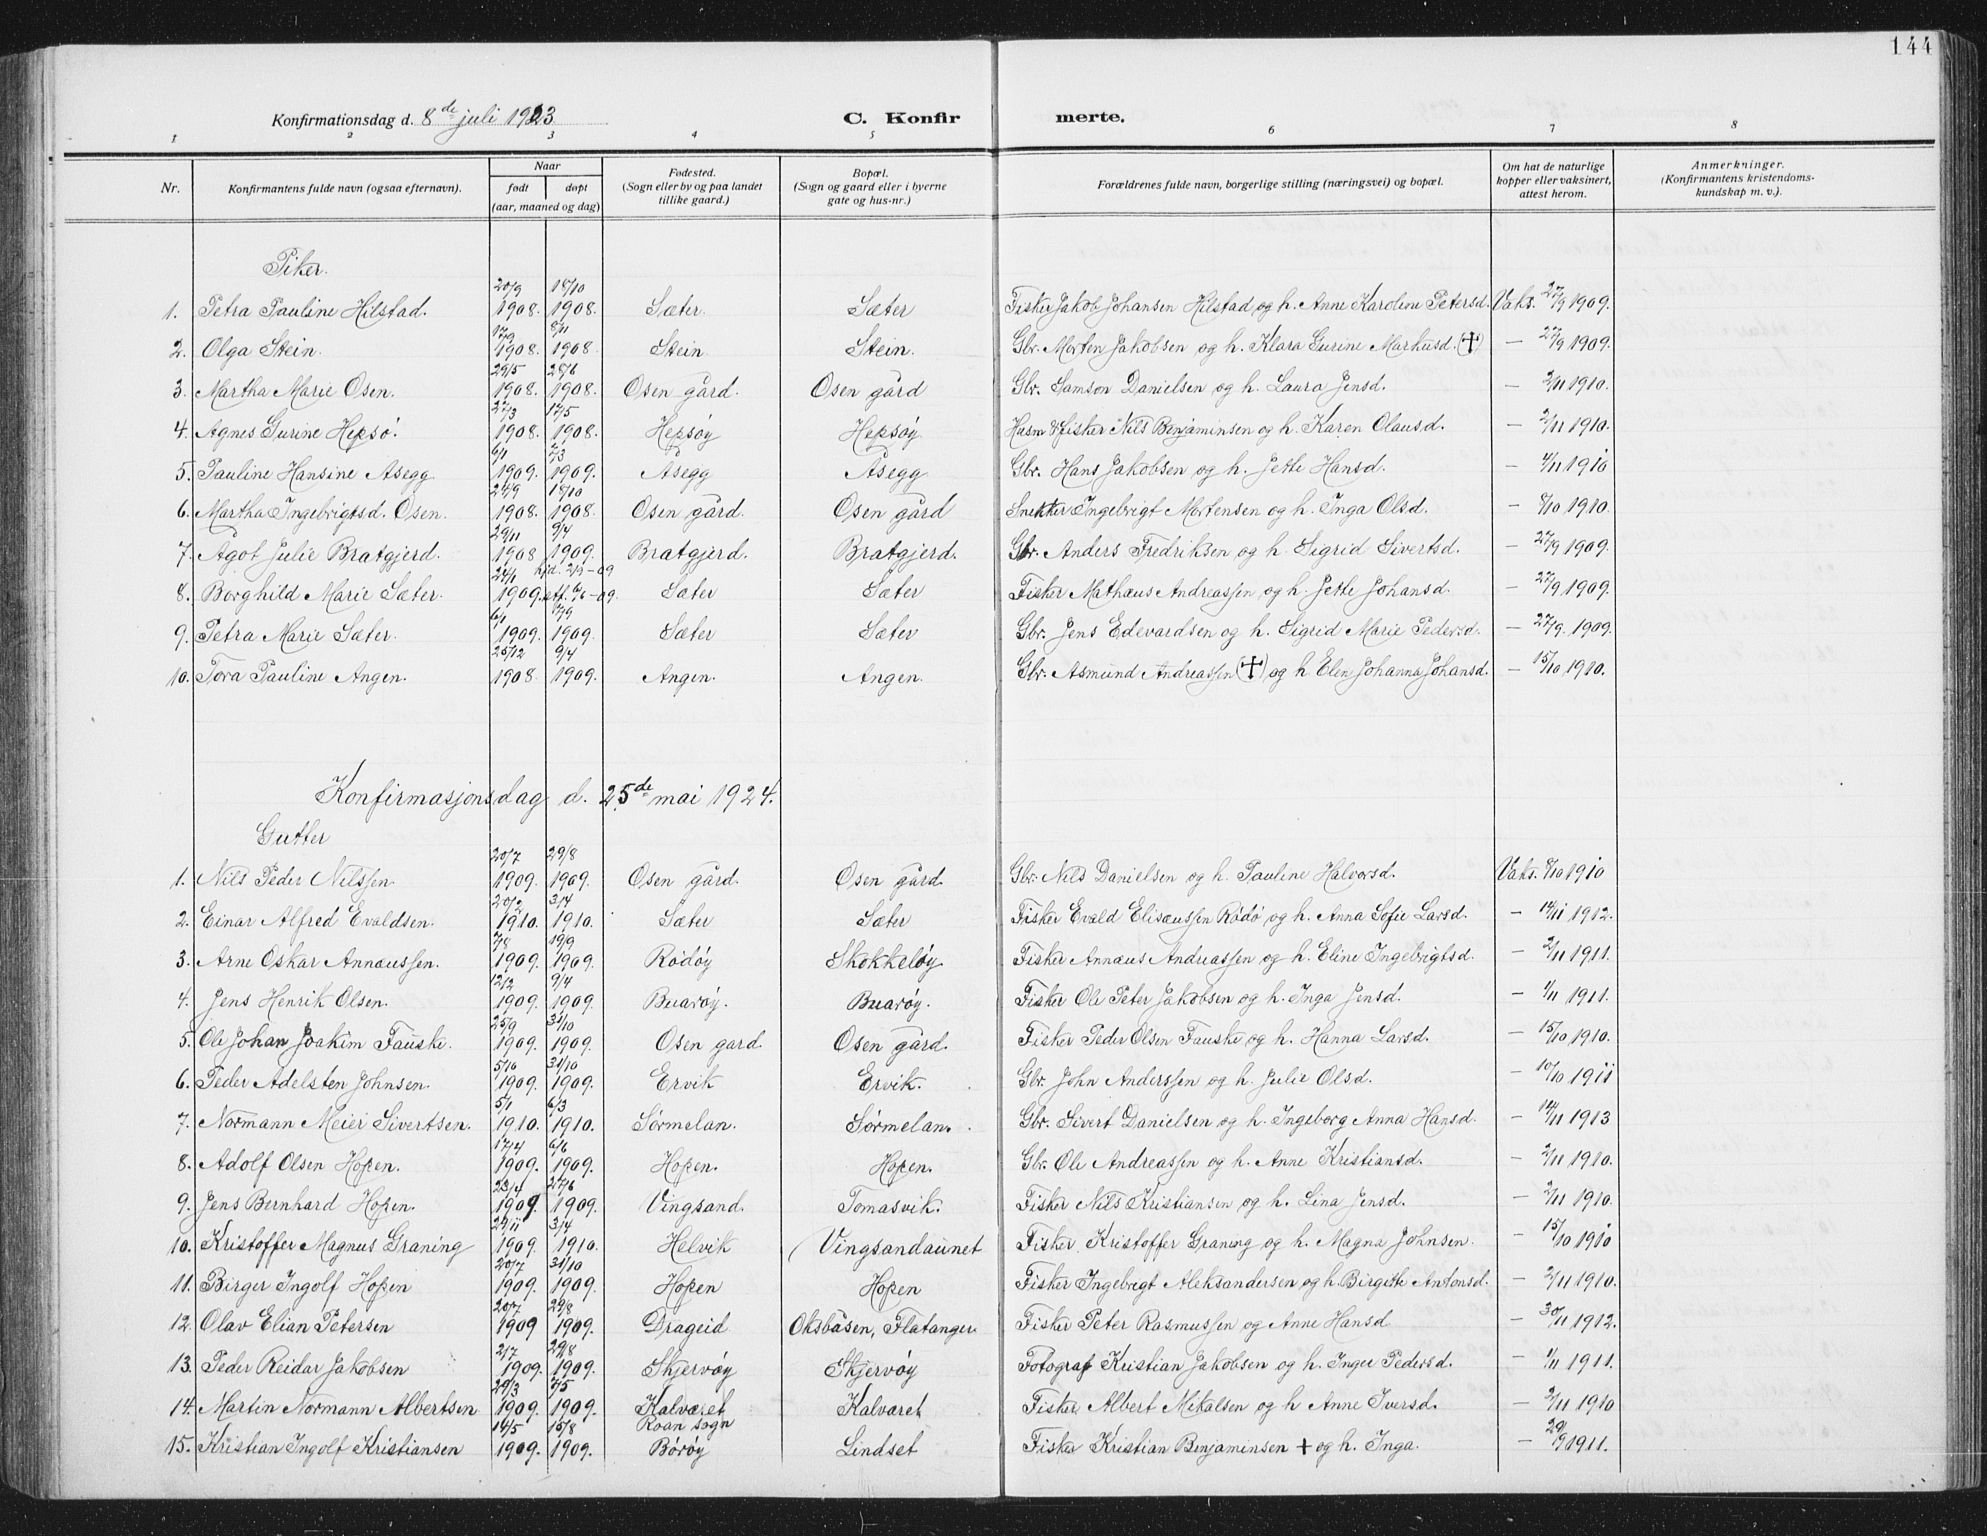 144
Konfirmationsdag d. 8de juli 1923 C. Konfir merte.
1 2 3 4 5 6 7 8
Nr. Konfirmantens fulde navn (ogsaa efternavn). Naar født døpt (aar, maaned og dag) Fødested. (Sogn eller by og paa landet tillike gaard.) Bopæl. (Sogn og gaard eller i byerne gate og hus-nr.) Forældrenes fulde navn, borgerlige stilling (næringsvei) og bopæl. Om hat de naturlige kopper eller vaksinert, attest herom. Anmerkninger. (Konfirmantens kristendoms-kundskap m. v.).
Piker.
1. Petra Pauline Hilstad. 20/9 1908. 18/10 1908. Sæter. Sæter Fisker Jakob Johansen Hilstad og h. Anne Karoline Petersd. Vaks. 27/9 1909.
2. Olga Stein. 17/9 1908. 8/11 1908. Stein. Stein. Gbr. Morten Jakobsen og h. Klara Gurine Markusd. (✝) — 27/9 1909.
3. Martha Marie Osen. 29/5 1908. 28/6 1908. Osen gård. Osen gård Gbr. Samson Danielsen og h. Laura Jensd. — 2/11 1910.
4. Agnes Gurine Hepsø. 27/3 1908. 17/5 1908. Hepsøy Hepsøy Husm & fisker Nils Benjaminsen og h. Karen Olausd. — 2/11 1910.
5. Pauline Hansine Asegg 6/1 1909. 7/3 1909. Asegg Asegg Gbr. Hans Jakobsen og h. Jette Hansd. — 4/11 1910
6. Martha Ingebrigtsd. Osen. 24/9 1908. 18/10 1908. Osen gård. Osen gård Snekker Ingebrigt Mortensen og h. Inga Olsd. — 8/10 1910.
7. Ågot Julie Bratgjerd. 29/11 1908 9/4 1909. Bratgjerd. Bratgjerd. Gbr. Anders Fredriksen og h. Sigrid Sivertsd. — 27/9 1909.
8. Borghild Marie Sæter. 24/1 1909. hjd. 2/2-09 stf. 6/6-09. Sæter Sæter Fisker Mathæus Andreassen og h. Jette Johansd. — 27/9 1909.
9. Petra Marie Sæter. 6/1 1909. 17/9 1909. Sæter Sæter Gbr. Jens Edevardsen og h. Sigrid Marie Pedersd. — 27/9. 1909.
10. Tora Pauline Angen. 25/12 1908. 9/4 1909. Angen. Angen. Gbr. Asmund Andreassen (✝) og h Elen Johanna Johansd. — 15/10 1910.
Konfirmasjonsdag d. 25de mai 1924.
Gutter
1. Nils Peder Nilssen. 20/7 1909. 29/8 1909. Osen gård. Osen gård. Gbr. Nils Danielsen og h. Pauline Halvorsd. Vaks. 8/10 1910
2. Einar Alfred Evaldsen. 20/2 1910. 3/4 1910. Sæter Sæter Fisker Evald Elisæussen Rødø og h. Anna Sofie Larsd. — 14/11 1912.
3. Arne Oskar Annæussen. 7/8 1909. 19/9 1909. Rødøy Skokkeløy Fisker Annæus Andreassen og h. Eline Ingebrigtsd. — 2/11 1911.
4. Jens Henrik Olsen. 12/2 1909. 9/4 1909. Buarøy. Buarøy. Fisker Ole Peter Jakobsen og h. Inga Jensd. — 1/11 1911.
5. Ole Johan Joakim Fauske. 25/9 1909. 31/10 1909. Osen gard. Osen gård. Fisker Peder Olsen Fauske og h. Hanna Larsd. — 15/10 1910.
6. Peder Adelsten Johnsen. 5/10 1909. 31/10 1909. Ervik Ervik. Gbr. John Anderssen og h. Julie Olsd. — 10/10 1911
7. Normann Meier Sivertsen. 5/1 1910. 6/3 1910. Sørmelan. Sørmelan. Gbr. Sivert Danielsen og h. Ingeborg Anna Hansd. — 14/11 1913
8. Adolf Olsen Hopen. 17/4 1909. 6/6 1909. Hopen. Hopen. Gbr. Ole Andreassen og h. Anne Kristiansd. — 2/11 1910.
9. Jens Bernhard Hopen. 23/4 1909 27/6 1909. Vingsand. Tomasvik. Fisker Nils Kristiansen og h. Lina Jensd. — 2/11 1910.
10. Kristoffer Magnus Graning 29/11 1909. 3/4 1910. Helvik Vingsandaunet Fisker Kristoffer Graning og h. Magna Johnsen. — 15/10 1910
11. Birger Ingolf Hopen 20/7 1909. 31/10 1909. Hopen Hopen Fisker Ingebrigt Aleksandersen og h. Birgitte Antonsd. — 2/11 1910.
12. Olav Elian Petersen 20/7 1909 29/8 1909. Drageid. Oksbåsen, Flatanger. Fisker Peter Rasmussen og Anne Hansd — 30/11 1912.
13. Peder Reidar Jakobsen 2/7 1909. 29/8 1909. Skjervøy Skjervøy Fotograf Kristian Jakobsen og h. Inger Pedersd. — 1/11 1911.
14. Martin Normann Albertsen 29/3 1909. 7/5 1909. Kalværet Kalværet Fisker Albert Mikalsen og h Anne Iversd. — 2/11 1910
15. Kristian Ingolf Kristiansen 14/5 1909. 15/8 1909. Roan sogn Børøy Lindset Fisker Kristian Benjaminsen + og h. Inga. — 29/9 1911.